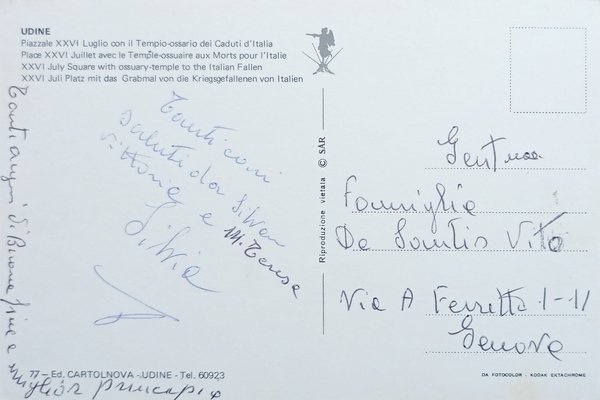 UDINE
Piazzale XXVI Luglio con il Tempio-ossario dei Caduti d'Italia
Place XXVI Juillet avec le Temple-ossuaire aux Morts pour l'Italie
XXVI July Square with ossuary-temple to the Italian Fallen
XXVI Juli Platz mit das Grabmal von die Kriegsgefallenen von Italien
Tanti cari
saluti da Silvan
Vittoria e
M. Teresa
Silvia
Tanti auguri di Buona fine e
miglior principio
Riproduzione vietata © SAR
Gent.ma
Famiglia
De Santis Vito
Via A Ferretto 1-11
Genova
77 - Ed. CARTOLNOVA - UDINE - Tel. 60923
DA FOTOCOLOR - KODAK EKTACHROME